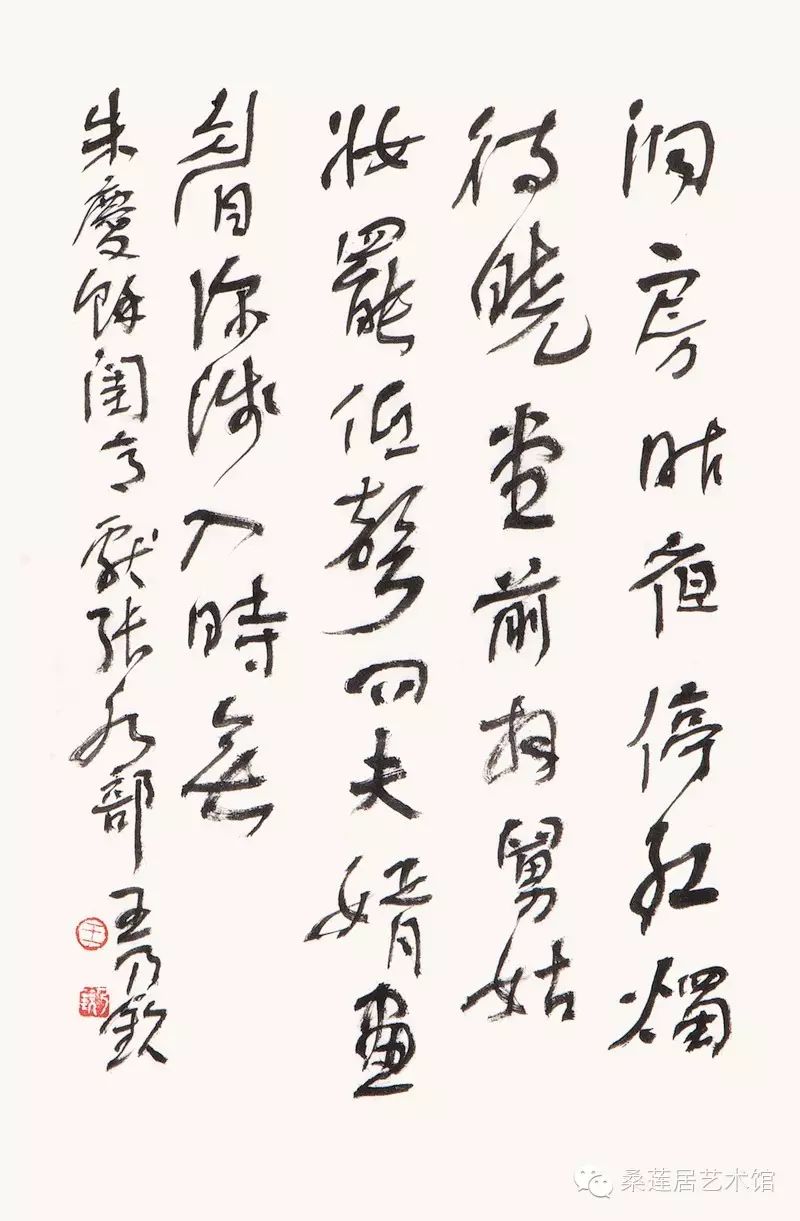 洞房昨夜停紅燭
待曉堂前拜舅姑
妝罷低聲問夫婿畫
眉深淺入時無
朱慶餘閨意獻張水部 王乃欽
王
桑莲居艺术馆